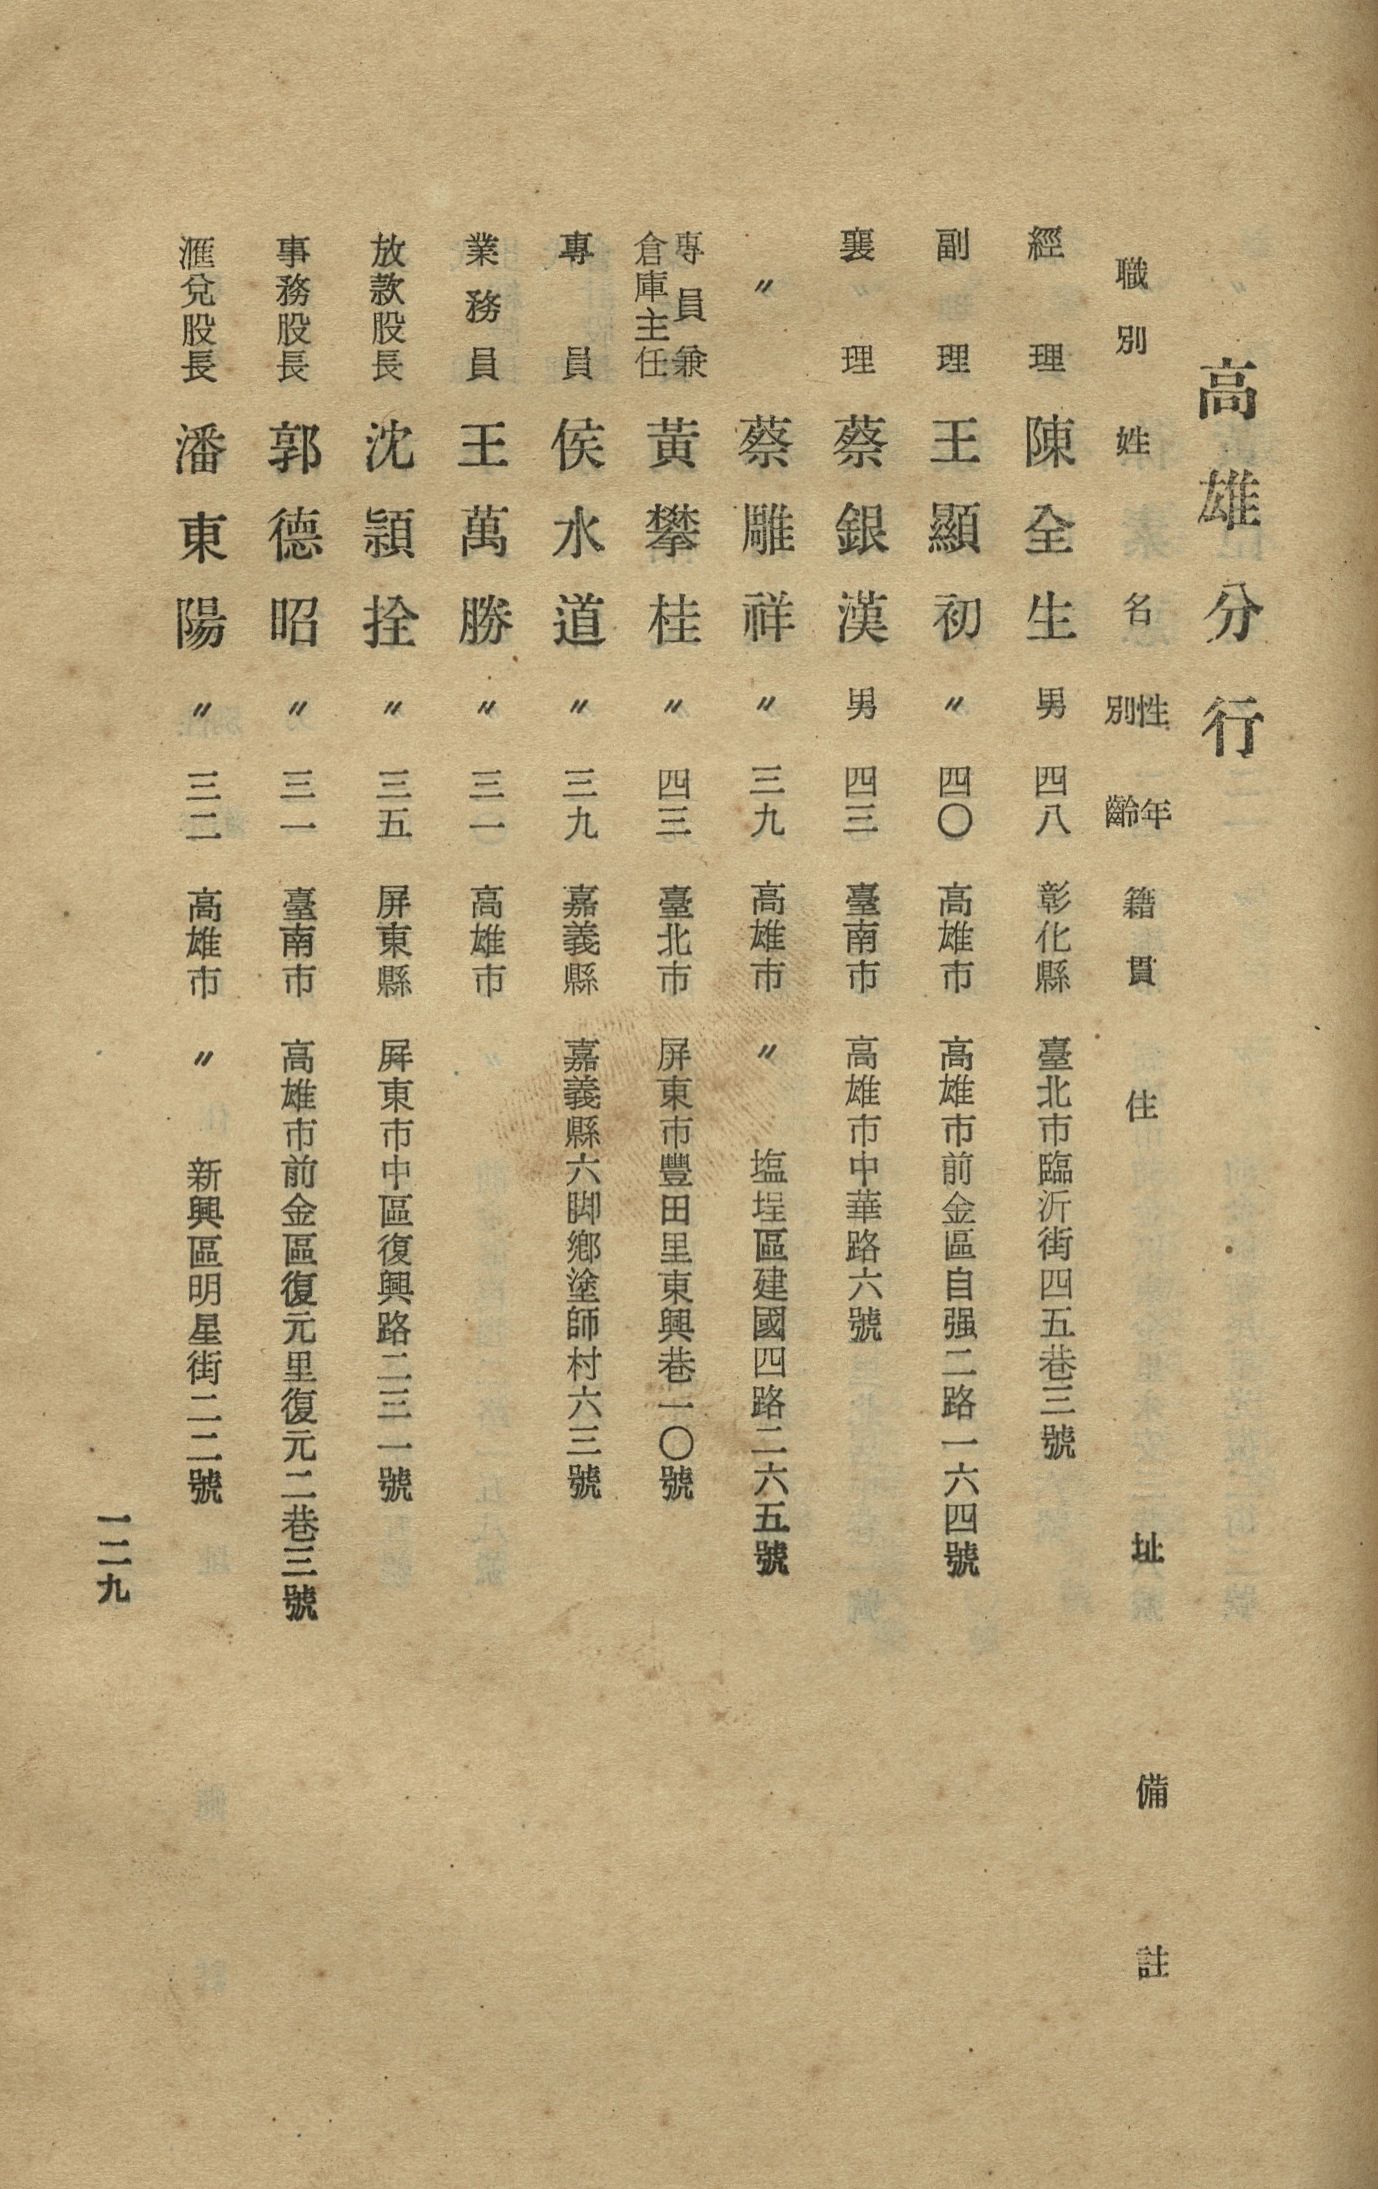 高雄分行
職別 姓名 性別 年齡 籍貫 住址 備註
經理 陳全生 男 四八 彰化縣 臺北市臨沂街四五巷三號
副理 王顯初 〃 四〇 高雄市 高雄市前金區自强二路一六四號
襄理 蔡銀漢 男 四三 臺南市 高雄市中華路六號
〃 蔡雕祥 〃 三九 高雄市 〃 塩埕區建國四路二六五號
專員兼倉庫主任 黃攀桂 〃 四三 臺北市 屏東市豐田里東興巷一〇號
專員 侯水道 〃 三九 嘉義縣 嘉義縣六脚鄉塗師村六三號
業務員 王萬勝 〃 三一 高雄市
放款股長 沈穎拴 〃 三五 屏東縣 屏東市中區復興路二三一號
事務股長 郭德昭 〃 三一 臺南市 高雄市前金區復元里復元二巷三號
滙兌股長 潘東陽 〃 三二 高雄市 〃 新興區明星街二二號
一二九